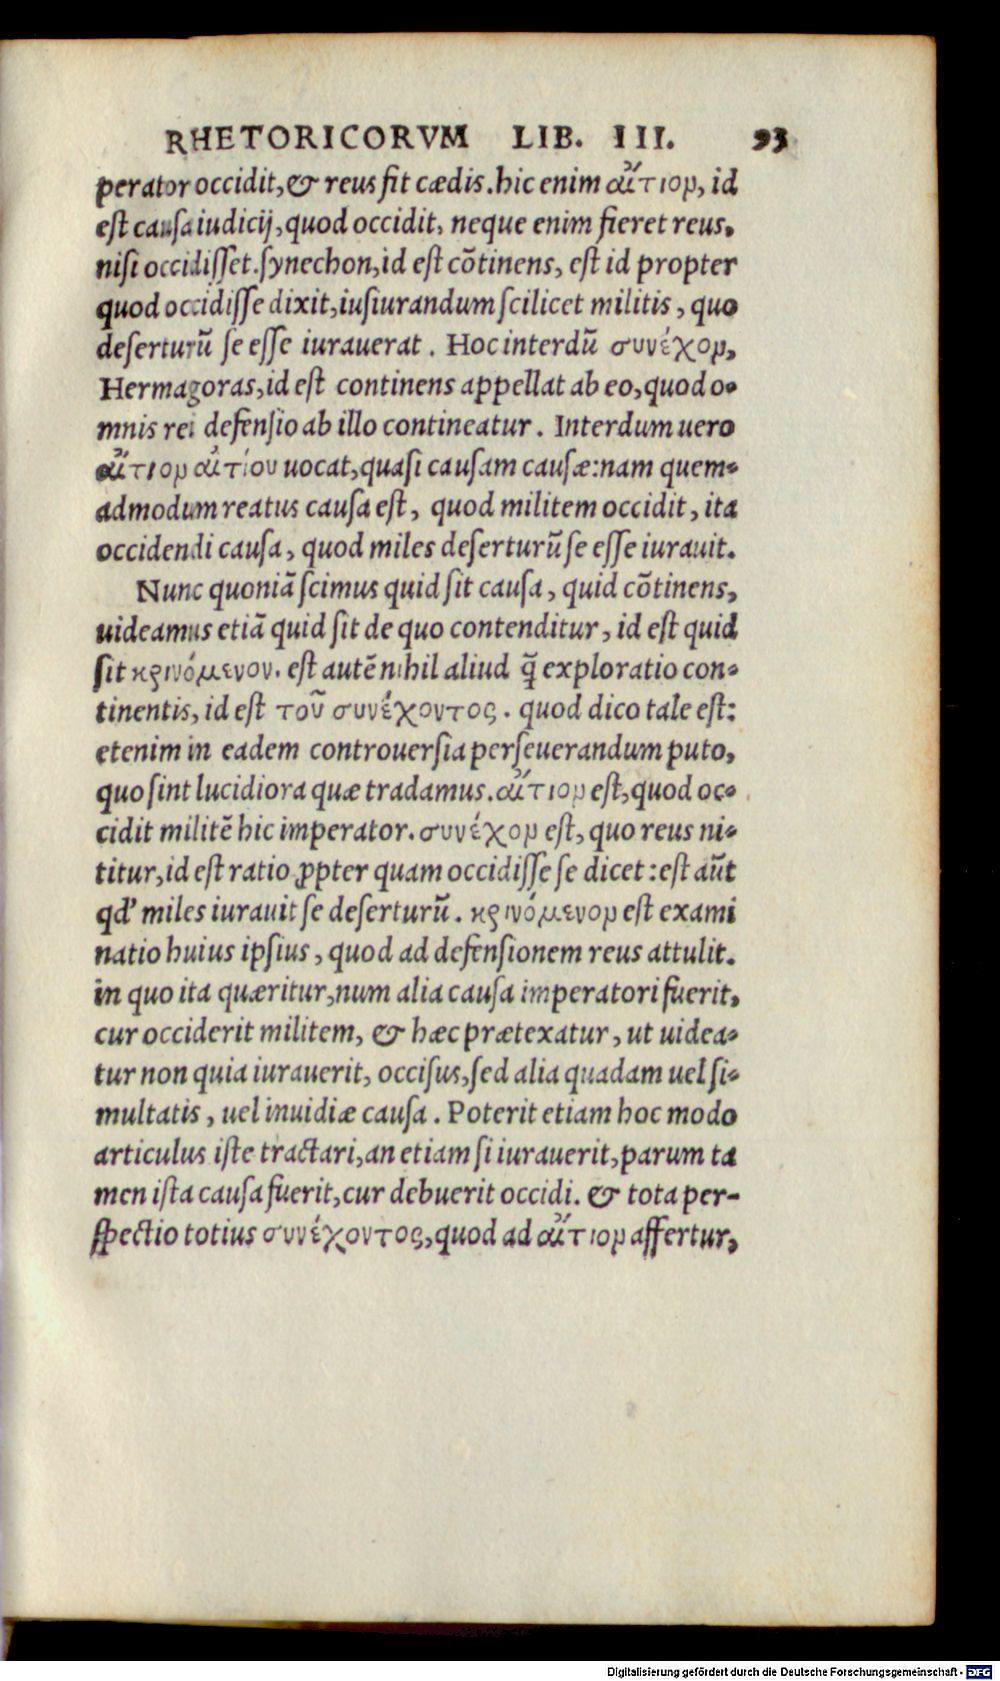 RHETORICORVM LIB. III. 93
perator occidit, & reus fit cædis. hic enim αἴτιον, id
est causa iudicij, quod occidit, neque enim fieret reus,
nisi occidisset. synechon, id est cõtinens, est id propter
quod occidisse dixit, iusiurandum scilicet militis, quo
deserturũ se esse iurauerat. Hoc interdũ συνέχον,
Hermagoras, id est continens appellat ab eo, quod o-
mnis rei defensio ab illo contineatur. Interdum uero
αἴτιον αἰτίου uocat, quasi causam causæ: nam quem-
admodum reatus causa est, quod militem occidit, ita
occidendi causa, quod miles deserturũ se esse iurauit.
Nunc quoniã scimus quid sit causa, quid cõtinens,
uideamus etiã quid sit de quo contenditur, id est quid
sit κρινόμενον. est autẽ nihil aliud q̃ exploratio con-
tinentis, id est τοῦ συνέχοντος. quod dico tale est:
etenim in eadem controuersia perseuerandum puto,
quo sint lucidiora quæ tradamus. αἴτιον est, quod oc-
cidit militẽ hic imperator. συνέχον est, quo reus ni-
titur, id est ratio ꝓpter quam occidisse se dicet: est aũt
qd' miles iurauit se deserturũ. κρινόμενον est exami
natio huius ipsius, quod ad defensionem reus attulit.
in quo ita quæritur, num alia causa imperatori fuerit,
cur occiderit militem, & hæc prætexatur, ut uidea-
tur non quia iurauerit, occisus, sed alia quadam uel si-
multatis, uel inuidiæ causa. Poterit etiam hoc modo
articulus iste tractari, an etiam si iurauerit, parum ta
men ista causa fuerit, cur debuerit occidi. & tota per-
spectio totius συνέχοντος, quod ad αἴτιον affertur,
Digitalisierung gefördert durch die Deutsche Forschungsgemeinschaft - DFG